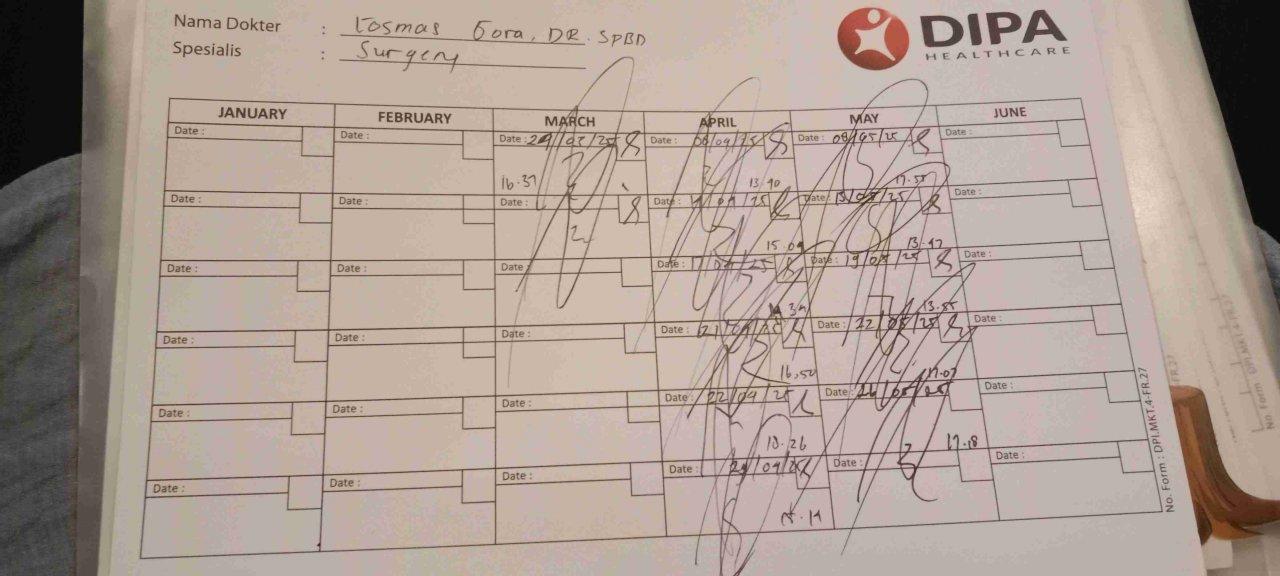 Nama Dokter : Kosmas Gora, DR. SPBD
Spesialis : Surgery
DIPA
HEALTHCARE
JANUARY FEBRUARY MARCH APRIL MAY JUNE
Date : Date : Date : 29/03/25 Date : 08/04/25 Date : 08/05/25 Date :
16.37 13.40 17.55
Date : Date : Date : Date : /04/25 Date : 15/05/25 Date :
15.09 13.47
Date : Date : Date : Date : 17/04/25 Date : 19/05/25 Date :
13.55
Date : Date : Date : Date : 21/04/25 Date : 22/05/25 Date :
16.50 17.07
Date : Date : Date : Date : 22/04/25 Date : 26/05/25 Date :
10.26 17.18
Date : Date : Date : Date : 29/04/25 Date : Date :
No. Form : DPI.MKT.4-FR.27